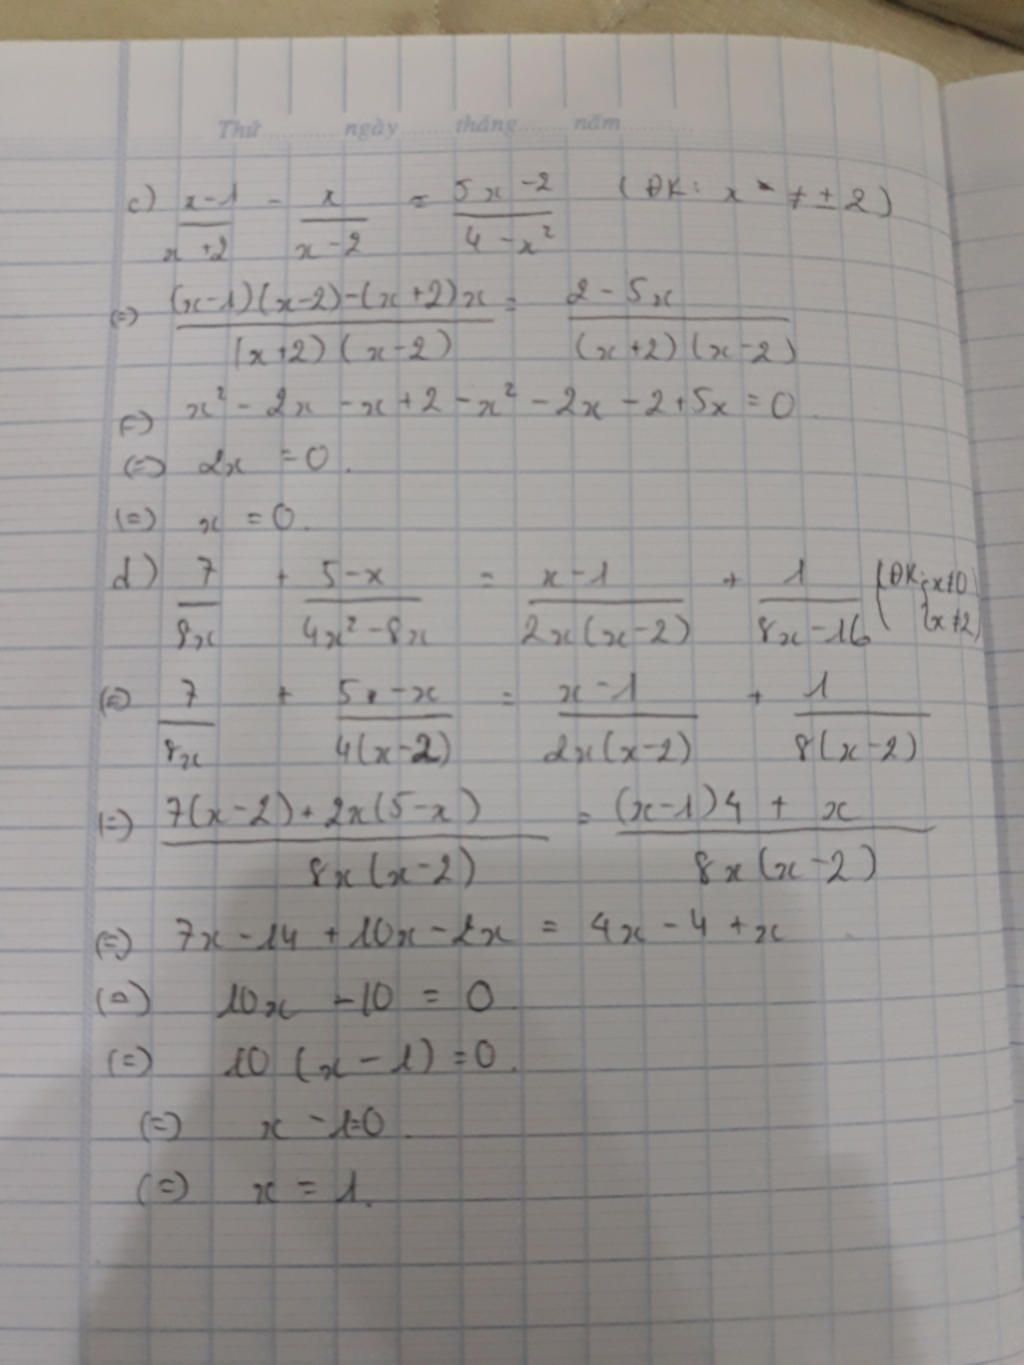 Thứ ngày tháng năm
c) (x-1)/(x+2) - x/(x-2) = (5x-2)/(4-x²) (ĐK: x ≠ ±2)
(=) ((x-1)(x-2)-(x+2)x)/((x+2)(x-2)) = (2-5x)/((x+2)(x-2))
(=) x² - 2x - x + 2 - x² - 2x - 2 + 5x = 0.
(=) 2x = 0.
(=) x = 0.
d) 7/(8x) + (5-x)/(4x²-8x) = (x-1)/(2x(x-2)) + 1/(8x-16) (ĐK: {x≠0 x≠2)
(=) 7/(8x) + (5-x)/(4(x-2)) = (x-1)/(2x(x-2)) + 1/(8(x-2))
(=) (7(x-2)+2x(5-x))/(8x(x-2)) = ((x-1)4 + x)/(8x(x-2))
(=) 7x - 14 + 10x - 2x = 4x - 4 + x
(=) 10x - 10 = 0
(=) 10 (x-1) = 0.
(=) x - 1 = 0.
(=) x = 1.